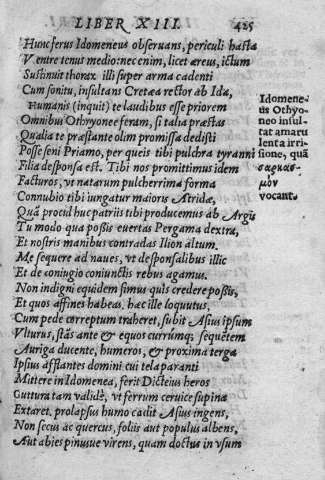 LIBER XIII. 425
Hunc ferus Idomeneus obseruans, periculi hasta
Ventre tenus medio: nec enim, licet æreus, ictum
Sustinuit thorax illi super arma cadenti
Cum sonitu, insultans Cretæa rector ab Ida,
Humanis (inquit) te laudibus esse priorem
Omnibus Othryonee feram, si talia præstas
Qualia te præstante olim promissa dedisti
Posse seni Priamo, per queis tibi pulchra tyranni
Filia desponsa est. Tibi nos promittimus idem
Facturos, vt natarum pulcherrima forma
Connubio tibi iungatur maioris Atridæ,
Quã procul huc patriis tibi producemus ab Argis
Tu modo qua possis euertas Pergama dextra,
Et nostris manibus contradas Ilion altum.
Me sequere ad naues, vt desponsalibus illic
Et de coniugio coniunctis rebus agamus.
Non indigni equidem simus quis credere possis,
Et quos affines habeas. hæc ille loquutus,
Cum pede correptum traheret, subit Asius ipsum
Vlturus, stãs ante & equos currúmq; sequẽtem
Auriga ducente, humeros, & proxima terga
Ipsius afflantes domini cui tela paranti
Mittere in Idomenea, ferit Dictæius heros
Guttura tam validè, vt ferrum ceruice supina
Extaret. prolapsus humo cadit Asius ingens,
Non secus ac quercus, foliis aut populus albens,
Aut abies pinusue virens, quam doctus in vsum
Idomene-
us Othryo-
neo insul-
tat amaru
lenta irri-
sione, quã
σαρκασ-
μὸν
vocant.